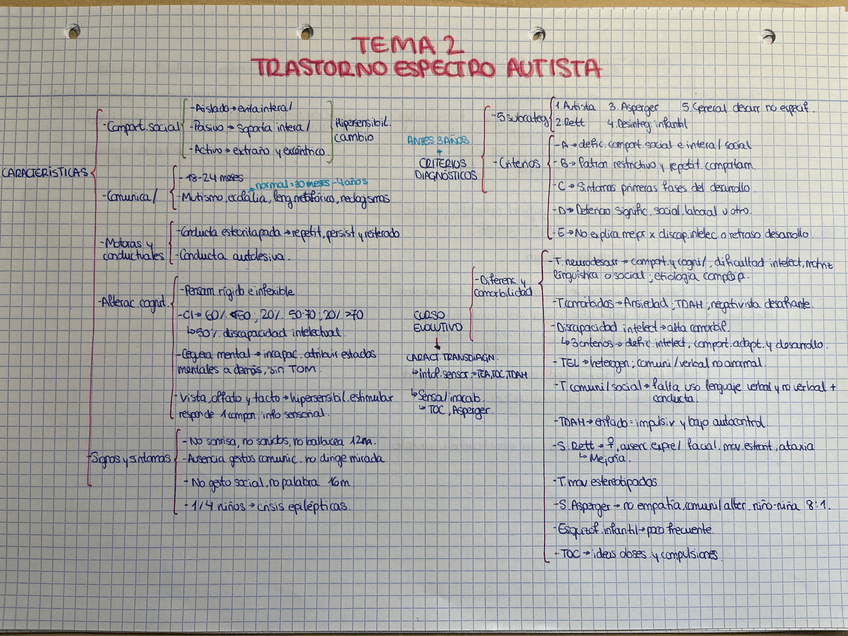 TEMA 2
TRASTORNO ESPECTRO AUTISTA
CARACTERÍSTICAS
-Comport. social
-Aislado → evita interal
-Pasivo → Soporta interal
-Activo → extraño y excéntrico
Hipersensibil.
cambio
-Comunica/
-18-24 meses
normal = 30 meses - 4 años
-Mutismo, ecolalia, leng metafórico, neologismos
-Motoras y
conductuales
-Conducta estereotipada → repetit, persist y reiterado
-Conducta autolesiva.
-Alterac. cognit.
-Pensam. rígido e inflexible
-CI → 60% <50; 20% 50-70; 20% >70
↳ 50% discapacidad intelectual
-Ceguera mental → incapac. atribuir estados
mentales a demás, sin TOM.
-Vista, olfato y tacto → hipersensibil. estimular
responde 1 compon. info sensorial.
-Signos y síntomas
-No sonrisa, no sonidos, no balbucea 12m.
-Ausencia gestos comunic. no dirige mirada
-No gesto social, no palabra 16m
-1/4 niños → crisis epilépticas.
ANTES 3 AÑOS
+
CRITERIOS
DIAGNÓSTICOS
-5 subcateg
1. Autista 3. Asperger 5. General desarr no especif.
2. Rett 4. Desinteg infantil
-Criterios
-A → defic. comport. social e interal social
-B → Patrón restrictivo y repetit. comportam.
-C → Síntomas primeras fases del desarrollo
-D → Deterioro signific. social, laboral u otro.
-E → No explica mejor x discap. intelec. o retraso desarrollo
CURSO
EVOLUTIVO
↓
CARACT TRANSDIAGN.
↳ intol. sensor → TEA, TOC, TDAH
↳ Sensa/ inacab.
↳ TOC, Asperger.
-Diferenc. y
comorbilidad
-T. neurodesarr → comport. y cognit, dificultad intelect, motriz
lingüística o social; etiología compleja.
-T comórbidos → Ansiedad, TDAH, negativista desafiante.
-Discapacidad intelect → alta comorbil.
↳ 3 criterios → defic intelect, comport. adapt. y desarrollo.
-TEL → heterogen; comuni/ verbal no anormal.
-T comuni/ social → falta uso lenguaje verbal y no verbal +
conducta.
-TDAH → enfado = impulsiv y bajo autocontrol.
-S. Rett → ♀, ausenc expre/ facial, mov. estereot, ataxia
↳ Mejoría.
-T mov estereotipados
-S. Asperger → no empatía, comuni/ alter. niño-niña 8:1.
-Esquizof. infantil → poco frecuente.
-TOC → ideas obses. y compulsiones.